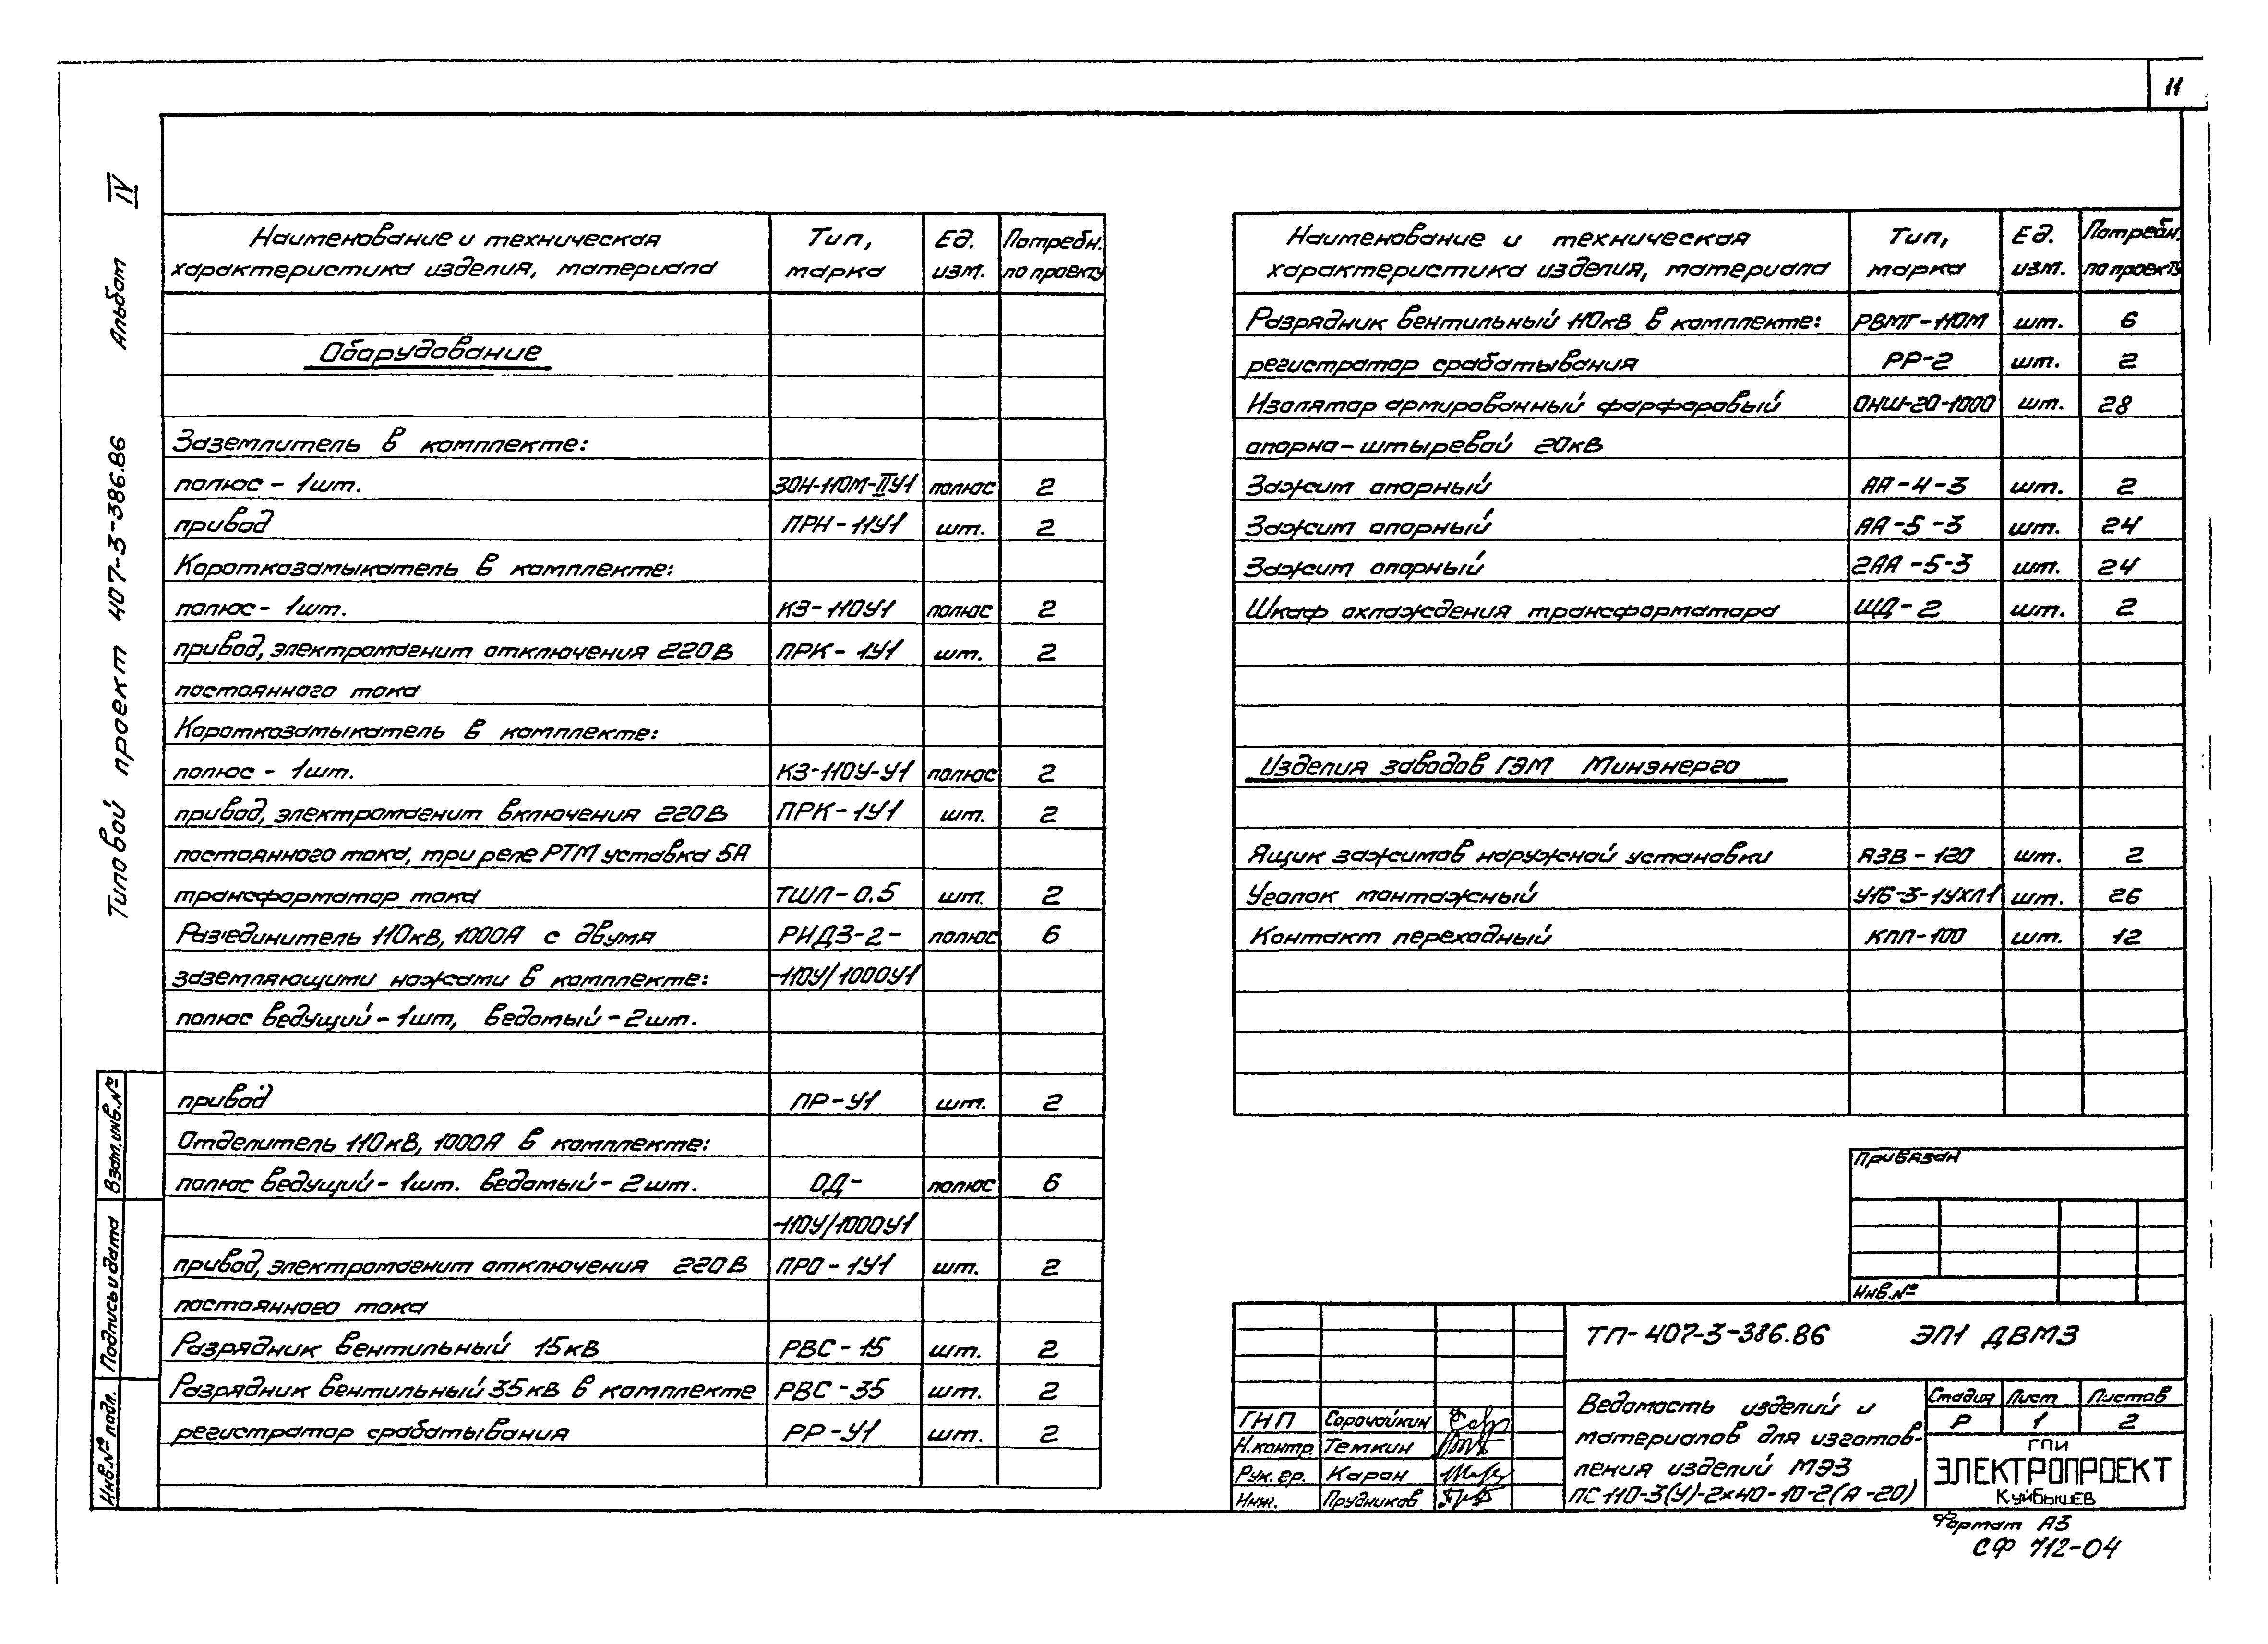 11
Типовой проект 407-3-386.86 Альбом IV
Наименование и техническая характеристика изделия, материала Тип, марка Ед. изм. Потребн. по проекту
Оборудование
Заземлитель в комплекте:
полюс - 1шт. ЗОН-110М-IIУ1 полюс 2
привод ПРН-11У1 шт. 2
Короткозамыкатель в комплекте:
полюс - 1шт. КЗ-110У1 полюс 2
привод, электромагнит отключения 220В ПРК-1У1 шт. 2
постоянного тока
Короткозамыкатель в комплекте:
полюс - 1шт. КЗ-110У-У1 полюс 2
привод, электромагнит включения 220В ПРК-1У1 шт. 2
постоянного тока, три реле РТМ уставка 5А
трансформатор тока ТШЛ-0.5 шт. 2
Раз'единитель 110кВ, 1000А с двумя РНДЗ-2- полюс 6
заземляющими ножами в комплекте: -110У/1000У1
полюс ведущий - 1шт, ведомый - 2шт.
привод ПР-У1 шт. 2
Отделитель 110кВ, 1000А в комплекте:
полюс ведущий - 1шт. ведомый - 2шт. ОД- полюс 6
-110У/1000У1
привод, электромагнит отключения 220В ПРО-1У1 шт. 2
постоянного тока
Разрядник вентильный 15кВ РВС-15 шт. 2
Разрядник вентильный 35кВ в комплекте РВС-35 шт. 2
регистратор срабатывания РР-У1 шт. 2
Наименование и техническая характеристика изделия, материала Тип, марка Ед. изм. Потребн. по проекту
Разрядник вентильный 110кВ в комплекте: РВМГ-110М шт. 6
регистратор срабатывания РР-2 шт. 2
Изолятор армированный фарфоровый ОНШ-20-1000 шт. 28
опорно-штыревой 20кВ
Зажим опорный АА-4-3 шт. 2
Зажим опорный АА-5-3 шт. 24
Зажим опорный 2АА-5-3 шт. 24
Шкаф охлаждения трансформатора ЩД-2 шт. 2
Изделия заводов ГЭМ Минэнерго
Ящик зажимов наружной установки ЯЗВ-120 шт. 2
Уголок монтажный У16-3-1УХЛ1 шт. 26
Контакт переходный КПП-100 шт. 12
Привязан
Инв.№
ТП-407-3-386.86 ЭП1 ДВМЗ
Ведомость изделий и
материалов для изготов-
ления изделий МЭЗ
ПС 110-3(У)-2х40-10-2(А-20)
Стадия Лист Листов
Р 1 2
ГПИ
ЭЛЕКТРОПРОЕКТ
Куйбышев
ГНП Сорочайкин
Н.контр. Темкин
Рук. гр. Каран
Инж. Прудников
Взам.инв.№
Подпись и дата
Инв.№ подл.
Формат А3
СФ 712-04